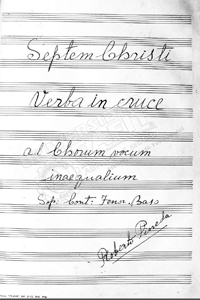 Septem Christi
Verba in cruce
ad Chorum vocum
inaequalium
Sop. Cont. Tenor. Bass
Roberto Pineda